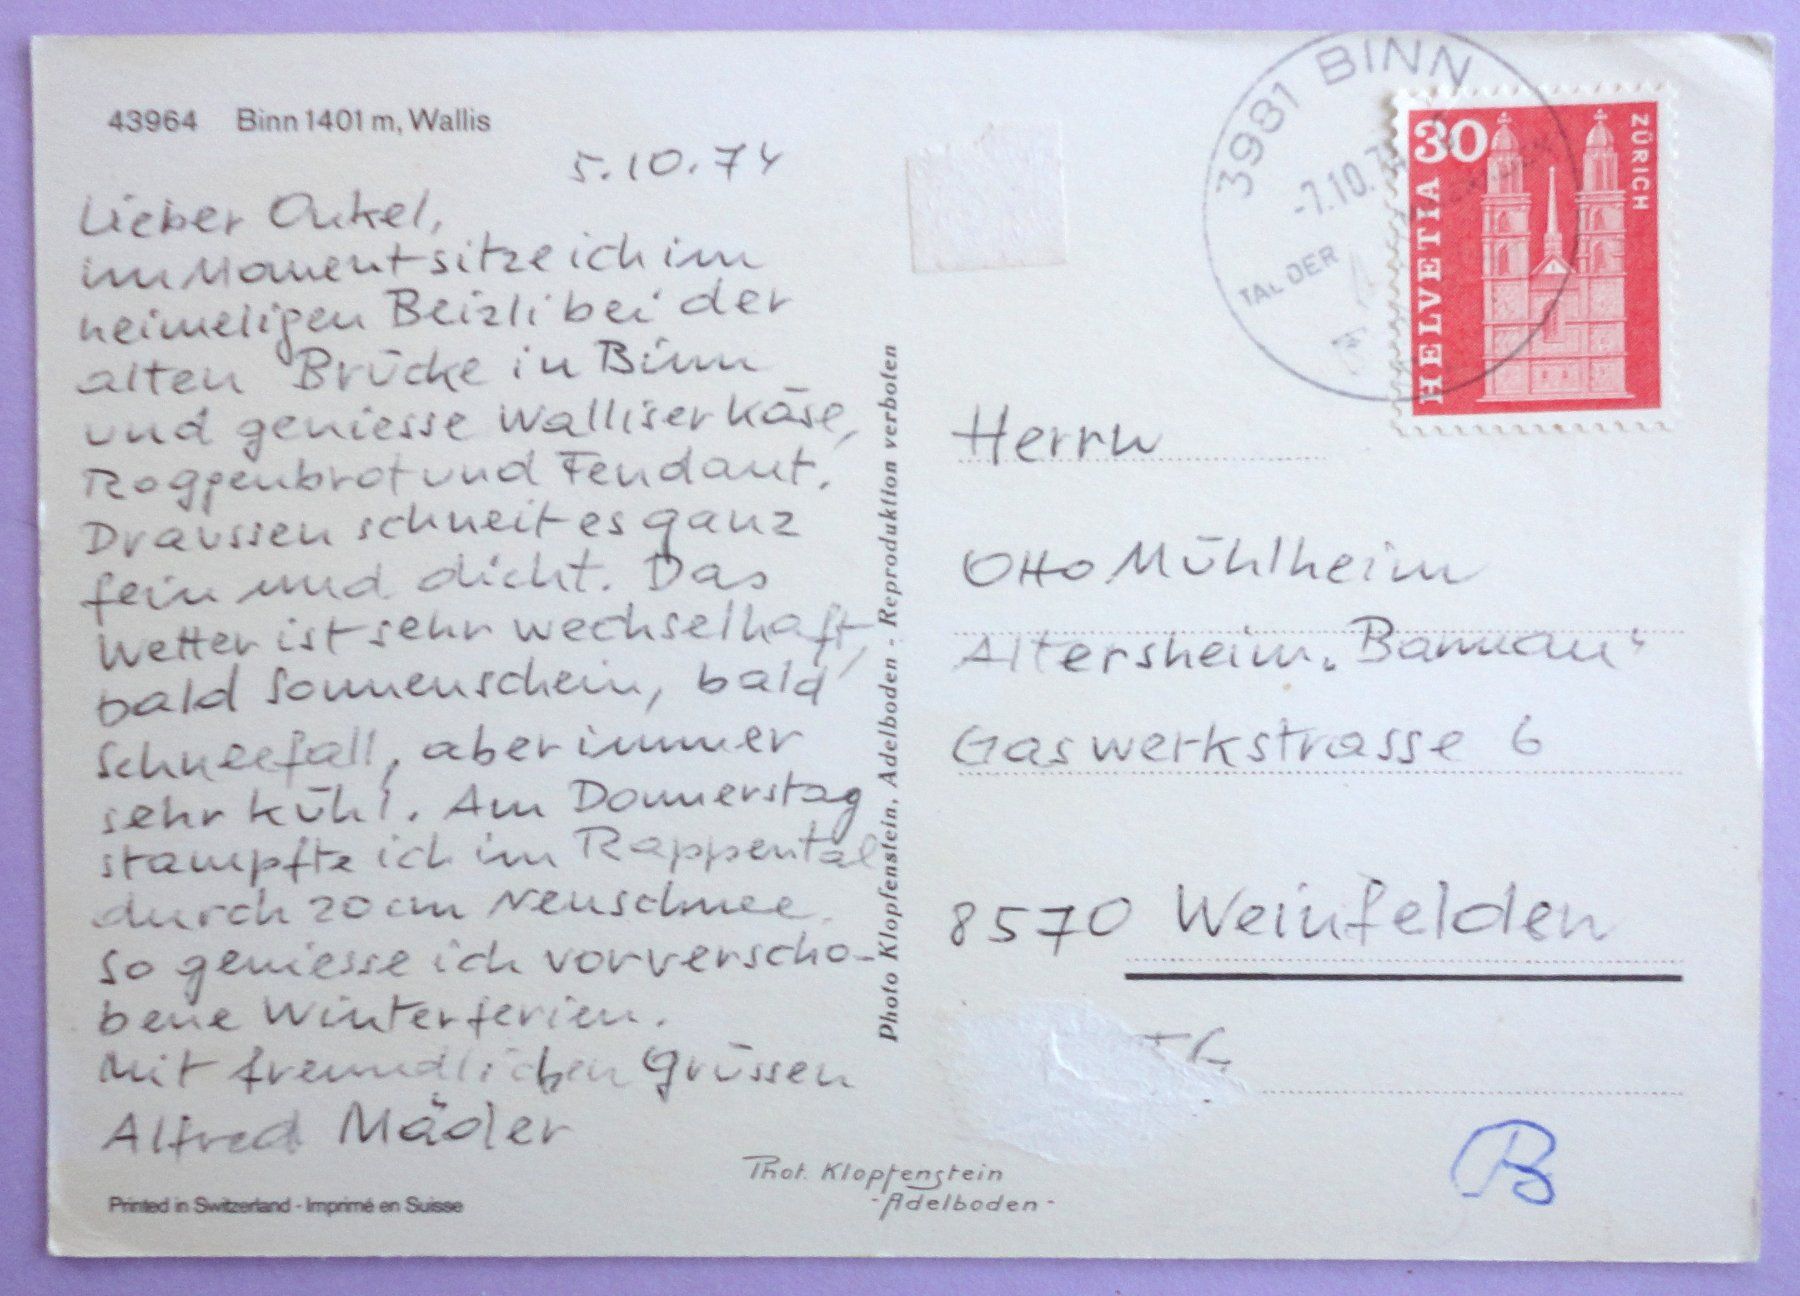 43964 Binn 1401 m, Wallis
5.10.74
Lieber Onkel,
im Moment sitze ich im
heimeligen Beizli bei der
alten Brücke in Binn
und geniesse Walliser Käse,
Roggenbrot und Fendant.
Draussen schneit es ganz
fein und dicht. Das
Wetter ist sehr wechselhaft,
bald Sonnenschein, bald
Schneefall, aber immer
sehr kühl. Am Donnerstag
stampfte ich im Rappental
durch 20 cm Neuschnee.
So geniesse ich vorverscho-
bene Winterferien.
Mit freundlichen Grüssen
Alfred Mäder
Printed in Switzerland - Imprimé en Suisse
Photo Klopfenstein, Adelboden - Reproduktion verboten
Phot. Klopfenstein
-Adelboden-
3981 BINN
-7.10.74
TAL DER
30
HELVETIA
ZÜRICH
Herrn
Otto Mühlheim
Altersheim „Bannau"
Gaswerkstrasse 6
8570 Weinfelden
TG
B